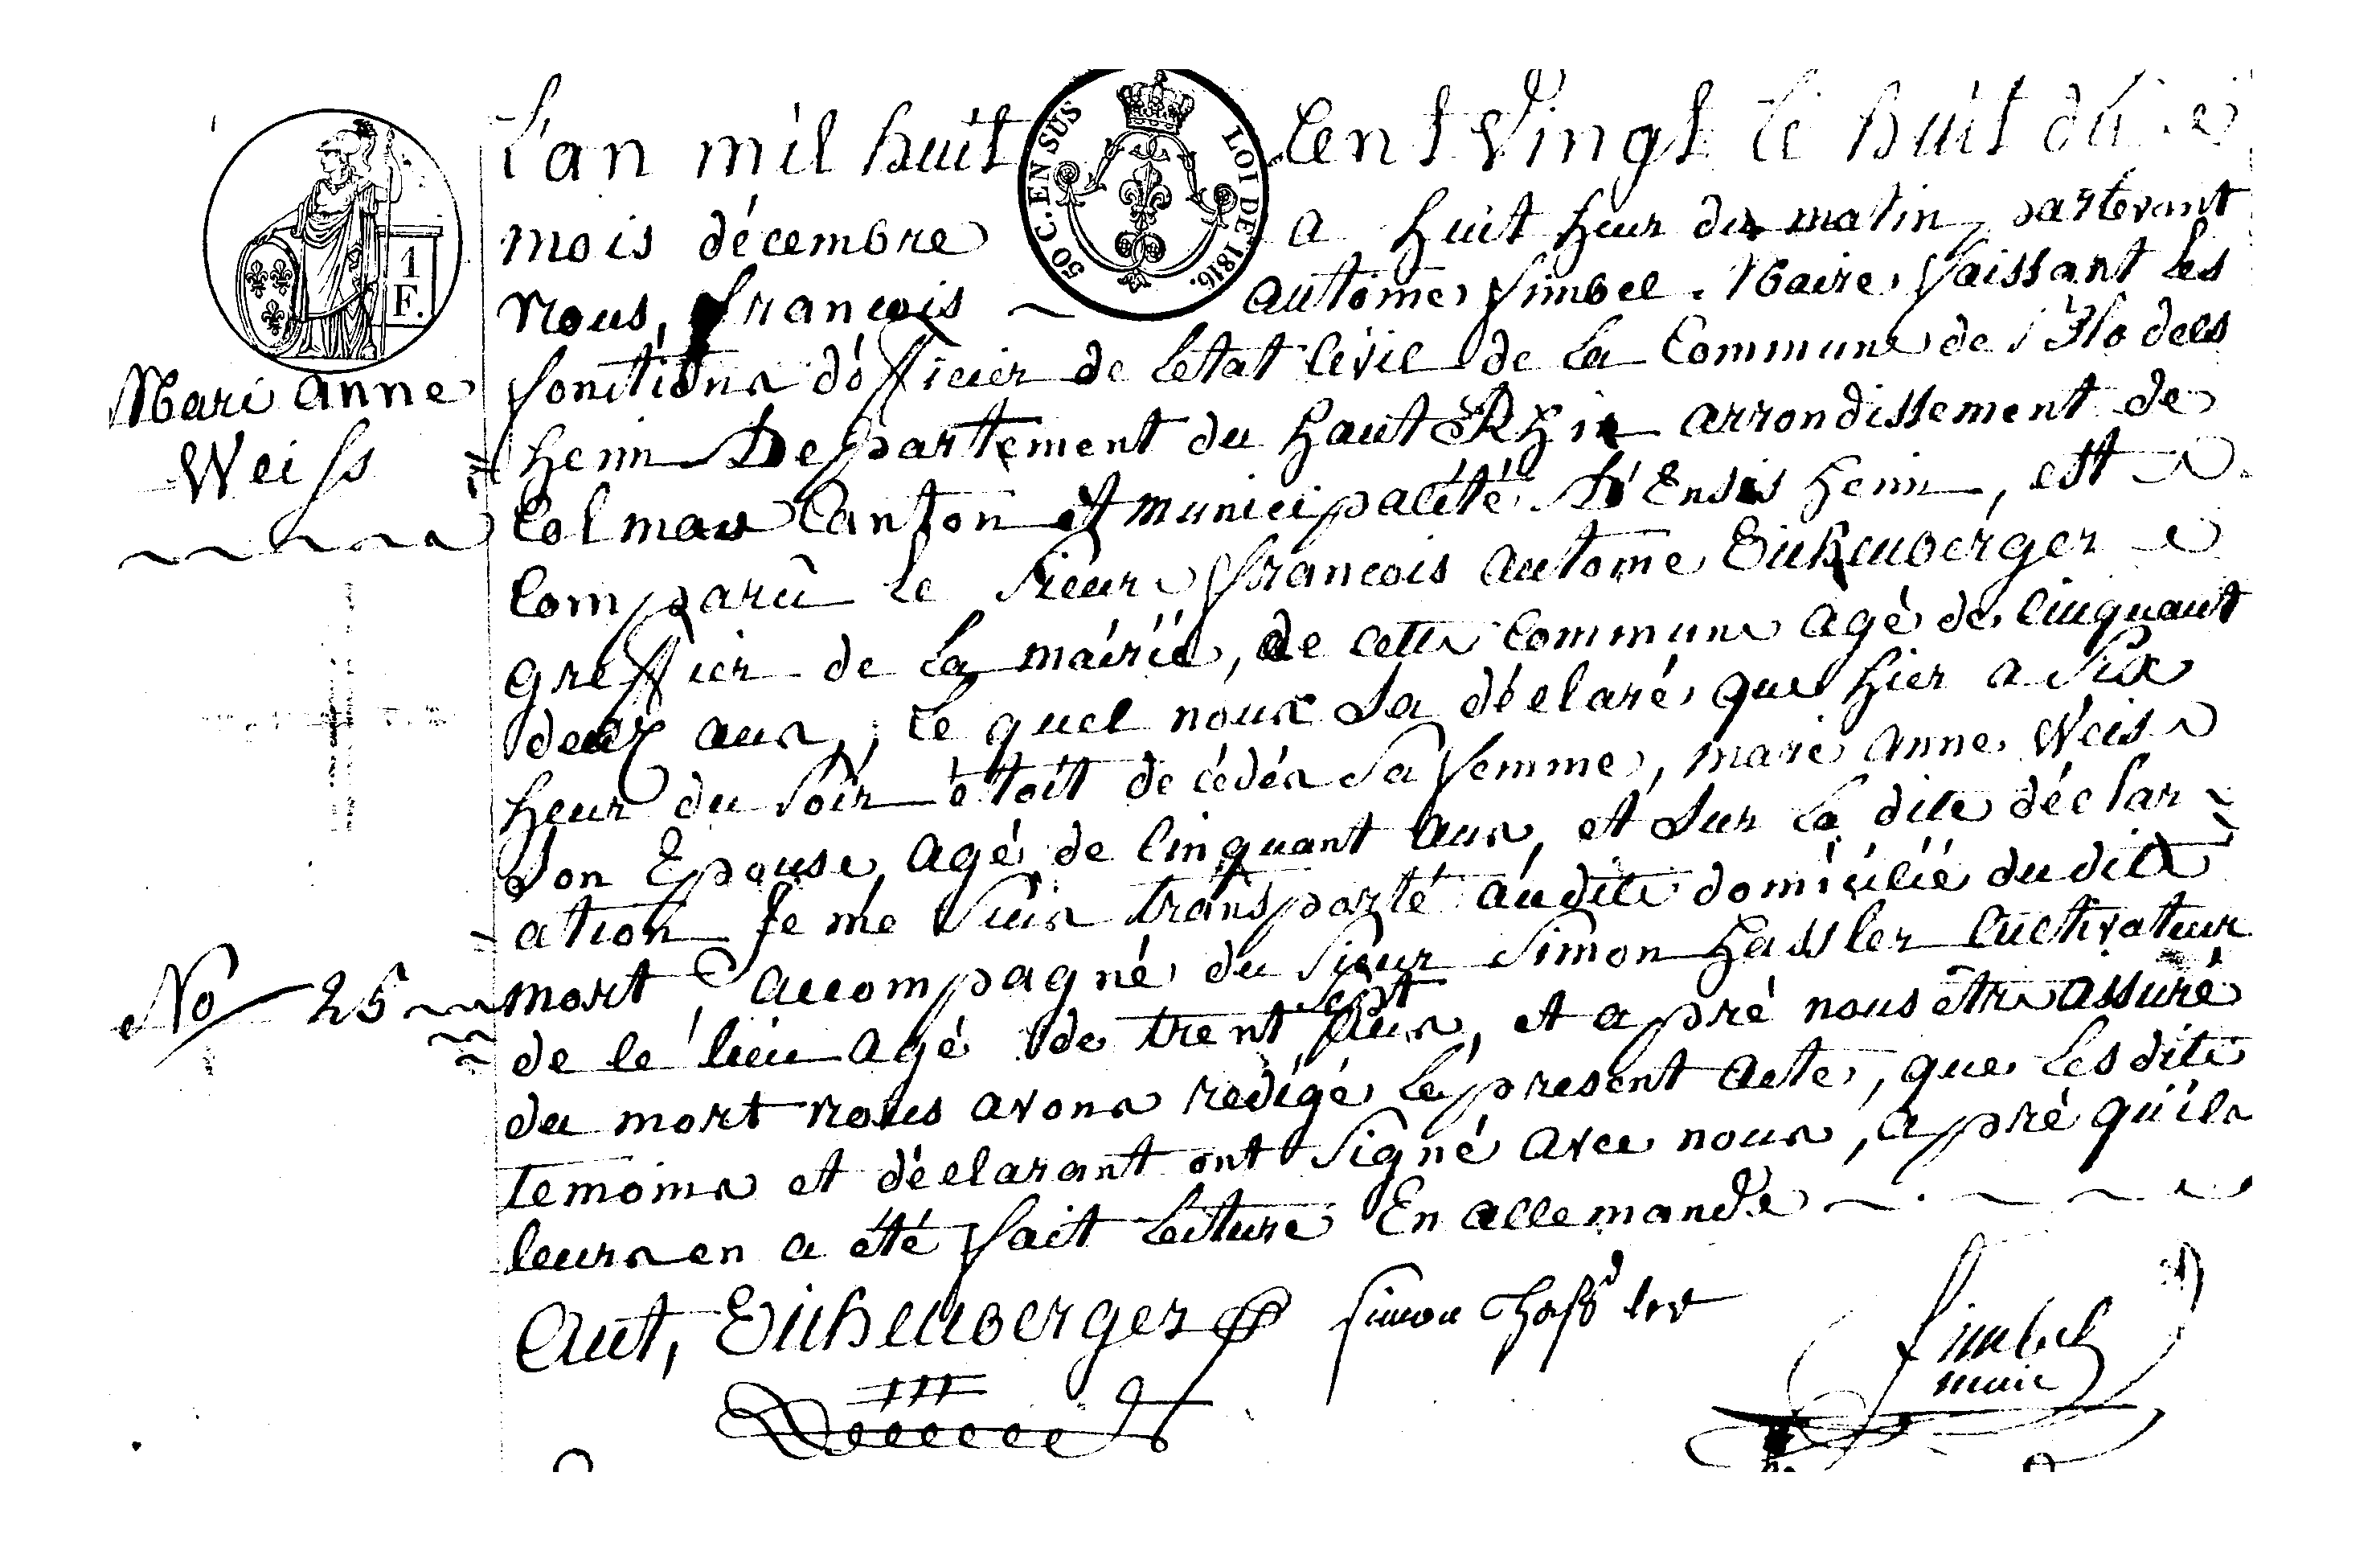 L'an mil huit Cent Vingt le huit du
mois décembre a huit heur du matin, partevant
Nous, françois ~ Antoine Simbel. Maire, faissant les
fonctions d'officier de Letat Civil de la Commune de
heim Departement du haut Rhin arrondissement de
Colmar Canton et municipalité D'Ensisheim, est
Comparû le Sieur françois Antoine Eichenberger
greffier de la mairié, de cette Commune agé de Cinquant
deux ans, le quel nous a déclaré, que hier a Six
heur du Soir étoit decédés Sa femme, marie anne Weis
Son Epouse, agé de Cinquant ans, et Sur la dite déclar ~
ation Je me Suis transporté audite domicilié dudite
mort, accompagné du Sieur Simon Hassler Cultivateur
de le lieu agé de trent Sept ans, et apré nous être assuré
du mort nous avons redigé le present acte, que les dite
temoins et déclarant ont Signé avec nous, apré qu'ils
leurs en a été fait Lecture En allemande
Ant, Eichenberger Simon Hassler
Simbel
maire
50 C. EN SUS
LOI DE 1816.
1
F.
Marie anne
Weiss
No 25